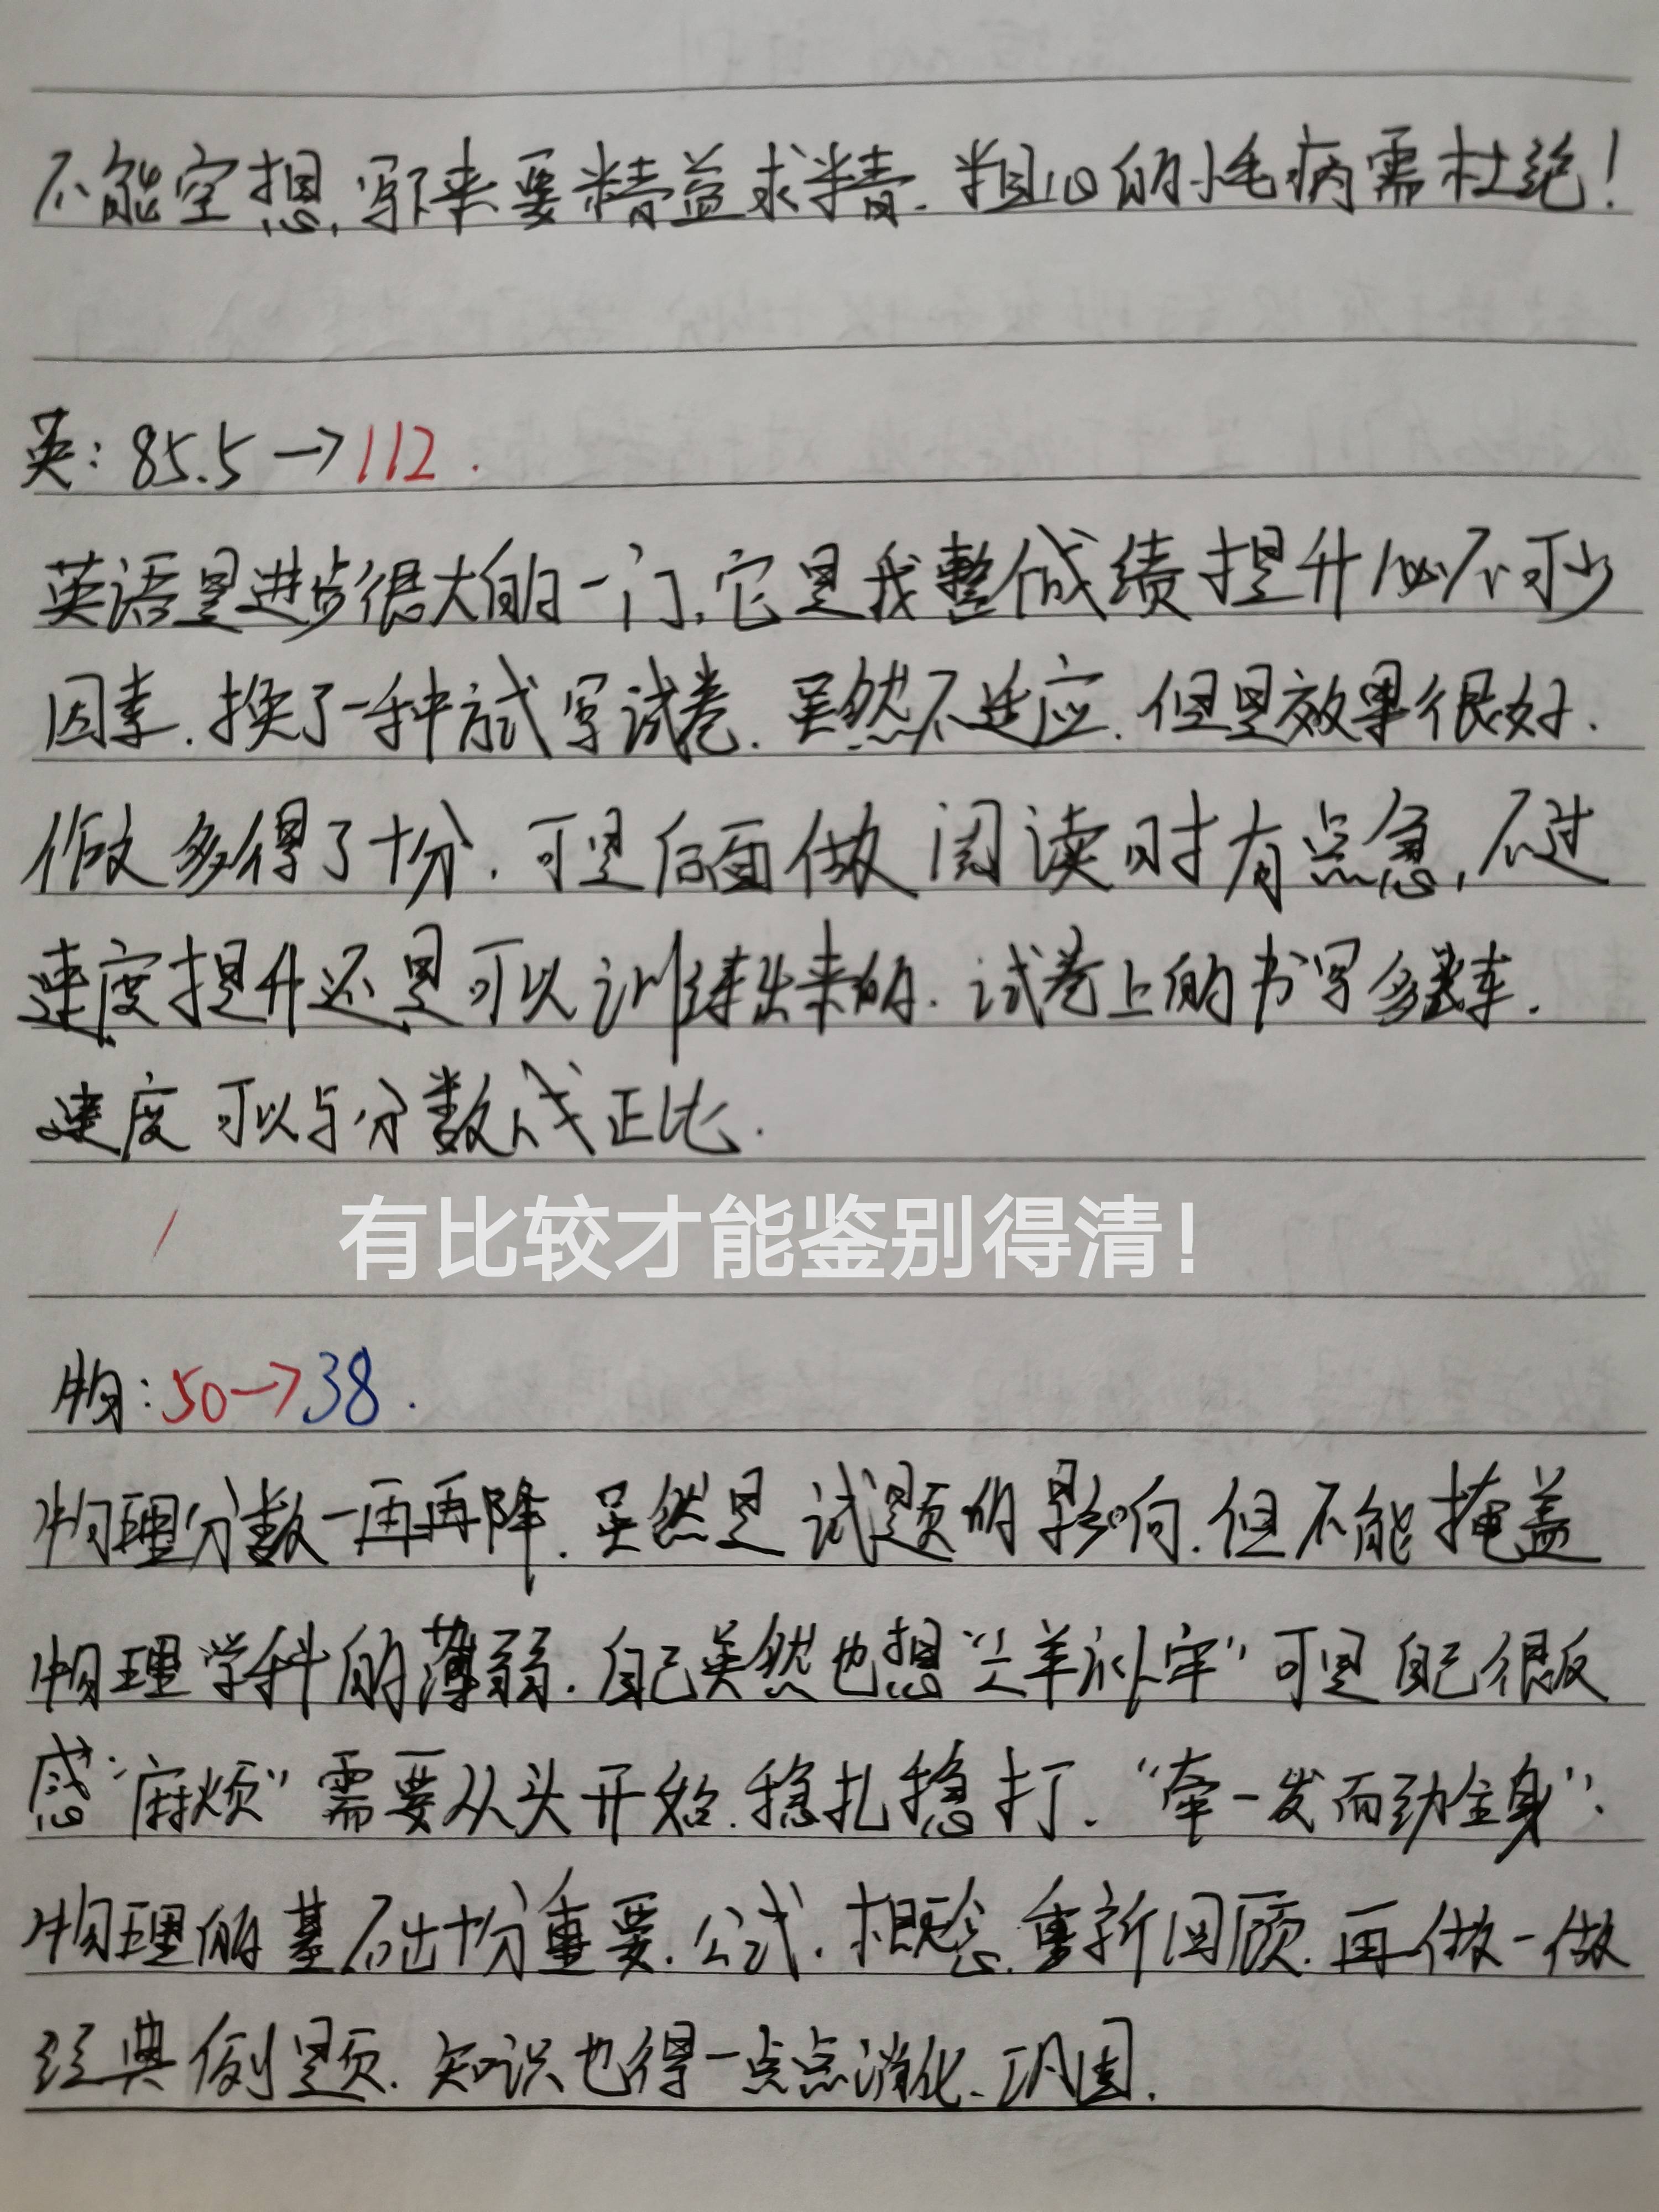 不能空想,写下来要精益求精.粗心的小毛病需杜绝!
英:85.5→112.
英语是进步很大的一门,它是我整体成绩提升必不可少
因素.换了一种方式写试卷.虽然不适应.但是效果很好.
作文多得了十分.可是后面做阅读时有点急,不过
速度提升还是可以训练出来的.试卷上的书写多练.
速度可以与分数成正比.
有比较才能鉴别得清!
物:50→38.
物理分数一再再降.虽然是试题的影响.但不能掩盖
物理学科的薄弱.自己虽然也想“亡羊补牢”可是自己很反
感“麻烦”需要从头开始.稳扎稳打.“牵一发而动全身”.
物理的基础十分重要.公式.概念.重新回顾.再做一做
经典例题.知识也得一点点消化、巩固.